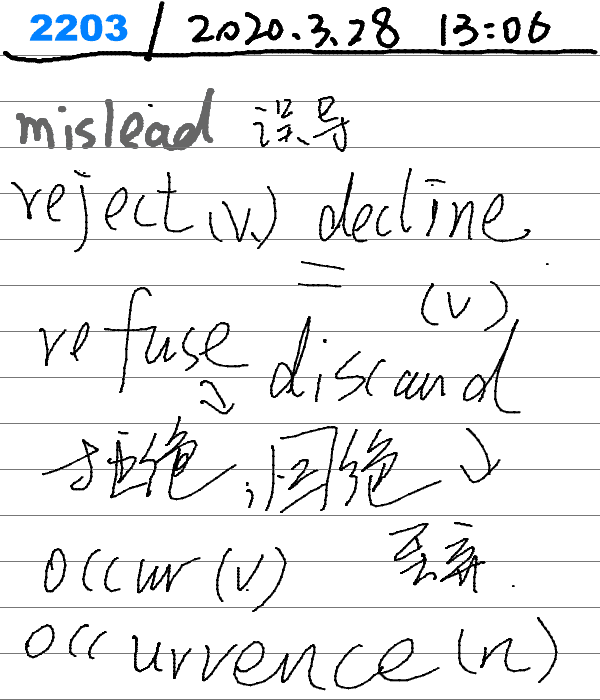 2203 / 2020.3.28 13:06
mislead 误导
reject (v.) decline
= (v)
refuse discard
拒绝,回绝
occur (v) 丢弃.
occurrence (n)